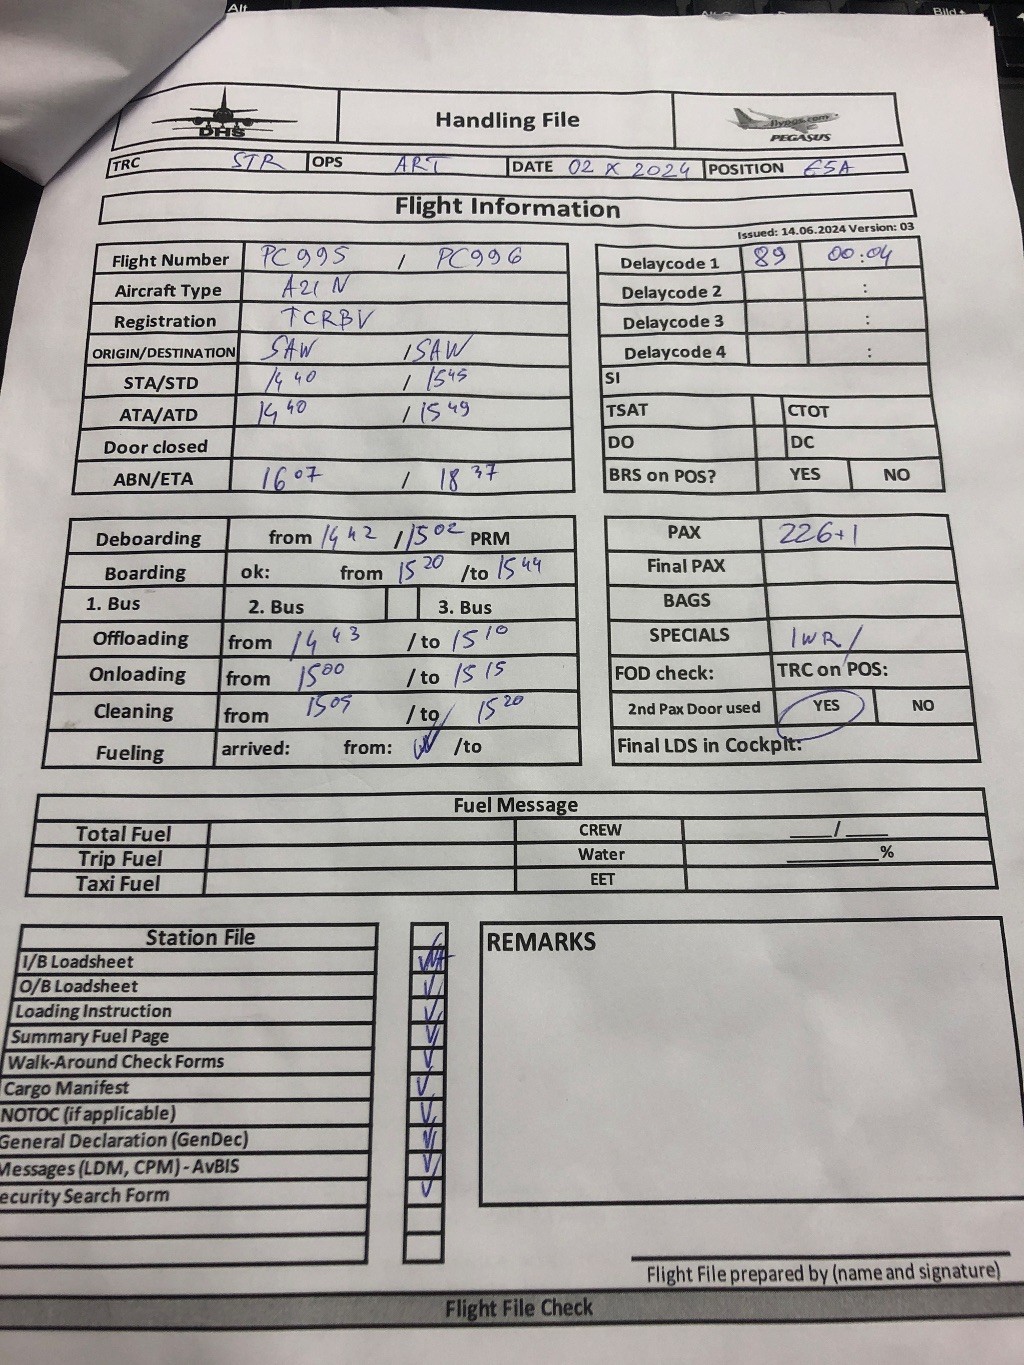 Alt
Bild
DHS
Handling File
flypgs.com
PEGASUS
TRC STR OPS ART DATE 02 X 2024 POSITION E5A
Flight Information
Issued: 14.06.2024 Version: 03
Flight Number PC995 / PC996
Aircraft Type A21N
Registration TCRBV
ORIGIN/DESTINATION SAW / SAW
STA/STD 14 40 / 15 45
ATA/ATD 14 40 / 15 49
Door closed
ABN/ETA 16 07 / 18 37
Delaycode 1 89 00:04
Delaycode 2 :
Delaycode 3 :
Delaycode 4 :
SI
TSAT CTOT
DO DC
BRS on POS? YES NO
Deboarding from 14 42 / 15 02 PRM
Boarding ok: from 15 20 /to 15 44
1. Bus 2. Bus 3. Bus
Offloading from 14 43 /to 15 10
Onloading from 15 00 /to 15 15
Cleaning from 15 05 /to 15 20
Fueling arrived: from: /to
PAX 226+1
Final PAX
BAGS
SPECIALS 1WR/
FOD check: TRC on POS:
2nd Pax Door used YES NO
Final LDS in Cockpit:
Fuel Message
Total Fuel CREW ___/___
Trip Fuel Water ______%
Taxi Fuel EET
Station File
I/B Loadsheet
O/B Loadsheet
Loading Instruction
Summary Fuel Page
Walk-Around Check Forms
Cargo Manifest
NOTOC (if applicable)
General Declaration (GenDec)
Messages (LDM, CPM) - AvBIS
ecurity Search Form
REMARKS
Flight File prepared by (name and signature)
Flight File Check